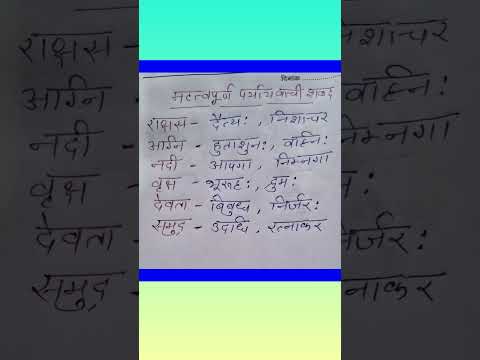 दिनांक
महत्त्वपूर्ण पर्यायवाची शब्द
राक्षस - दैत्य:, निशाचर
अग्नि - हुताशन:, वह्नि:
नदी - आपगा, निम्नगा
वृक्ष - भूरूह:, द्रुम:
देवता - विबुध, निर्जर:
समुद्र - उदधि, रत्नाकर